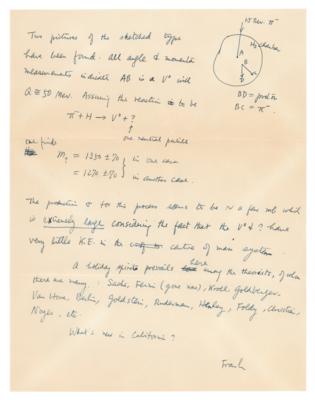 Two pictures of the sketched type
have been found. All angle & momenta
measurements indicate AB is a V° with
Q ≅ 50 Mev. Assuming the reaction to be
π⁻ + H → V° + ?
↑ one neutral particle
one finds
M? = 1350 ± 70 } in one case
= 1670 ± 70 } in another case.
Mev. π⁻
H₂ chamber
A
B
C
D
BD = proton
BC = π⁻
The production σ for this process seems to be ~ a few mb which
is extremely large considering the fact that the V° & ? have
very little K.E. in the centre of mass system.
A holiday spirit prevails here among the theorists, of whom
there are many: Sachs, Fermi (gone now), Kroll, Goldberger,
Van Hove, Berlin, Goldstein, Ruderman, Henley, Foldy, Christian,
Noyes, etc.
What's new in California?
Frank